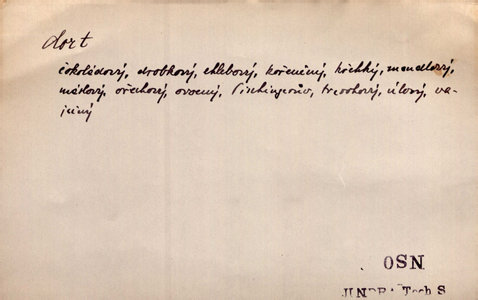 dort
čokoládový, drobkový, chlebový, kořeněný, křehký, mandlový,
máslový, ořechový, ovocný, Pischingerův, tvarohový, úlový, va-
ječný
OSN
JINDRA Tech S